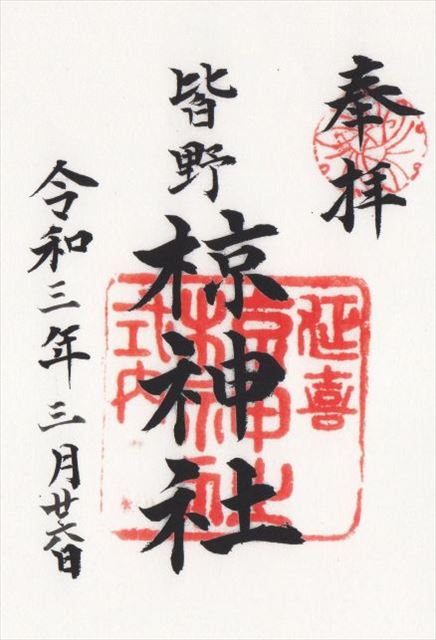 奉拝
延喜
皆野
椋神社
椋神社
式内
令和三年三月廿六日